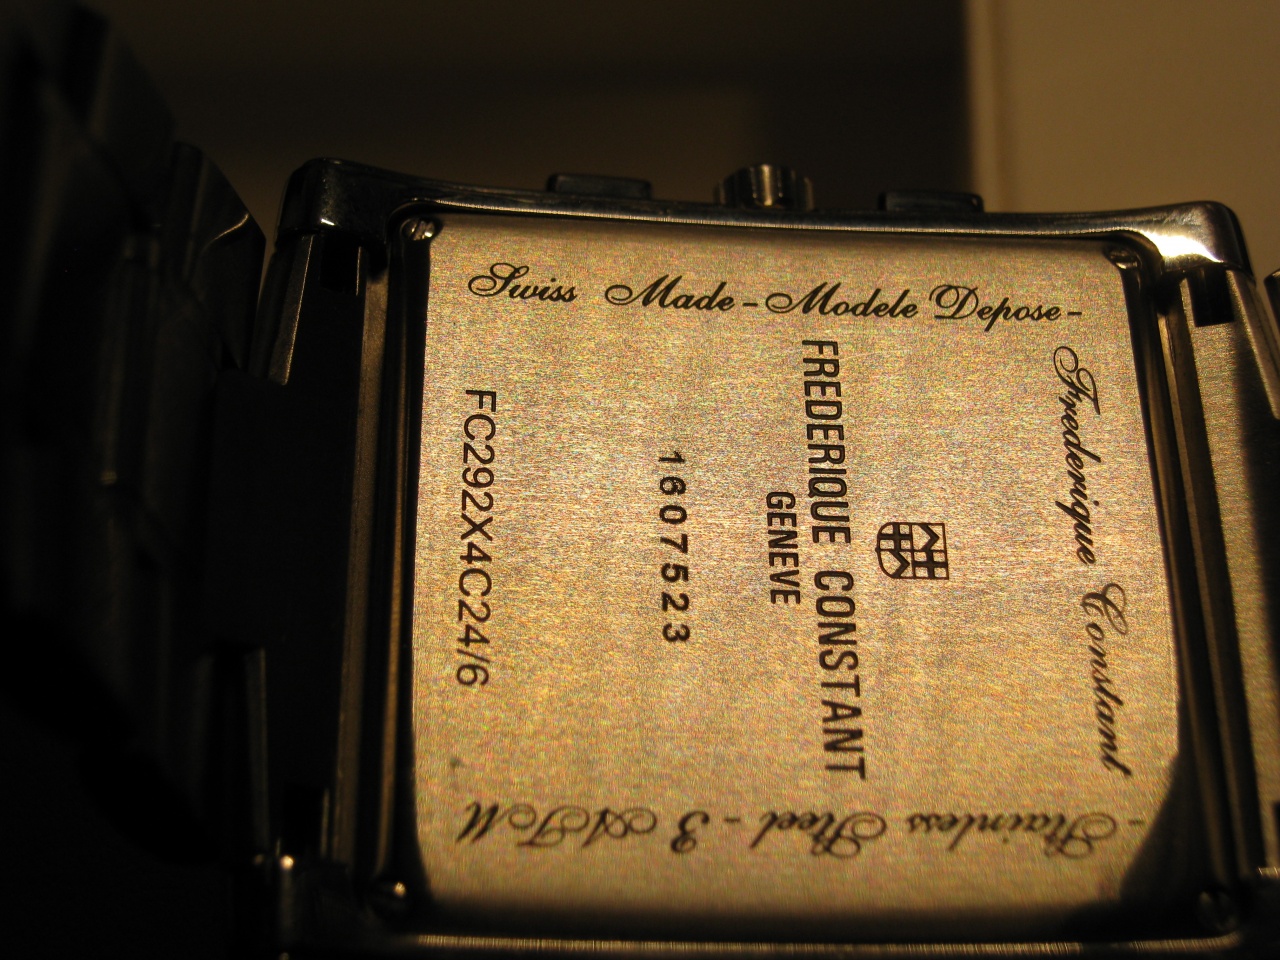 Swiss Made - Modele Depose -
Frederique Constant
- Stainless Steel - 3 ATM
FREDERIQUE CONSTANT
GENEVE
1607523
FC292X4C24/6